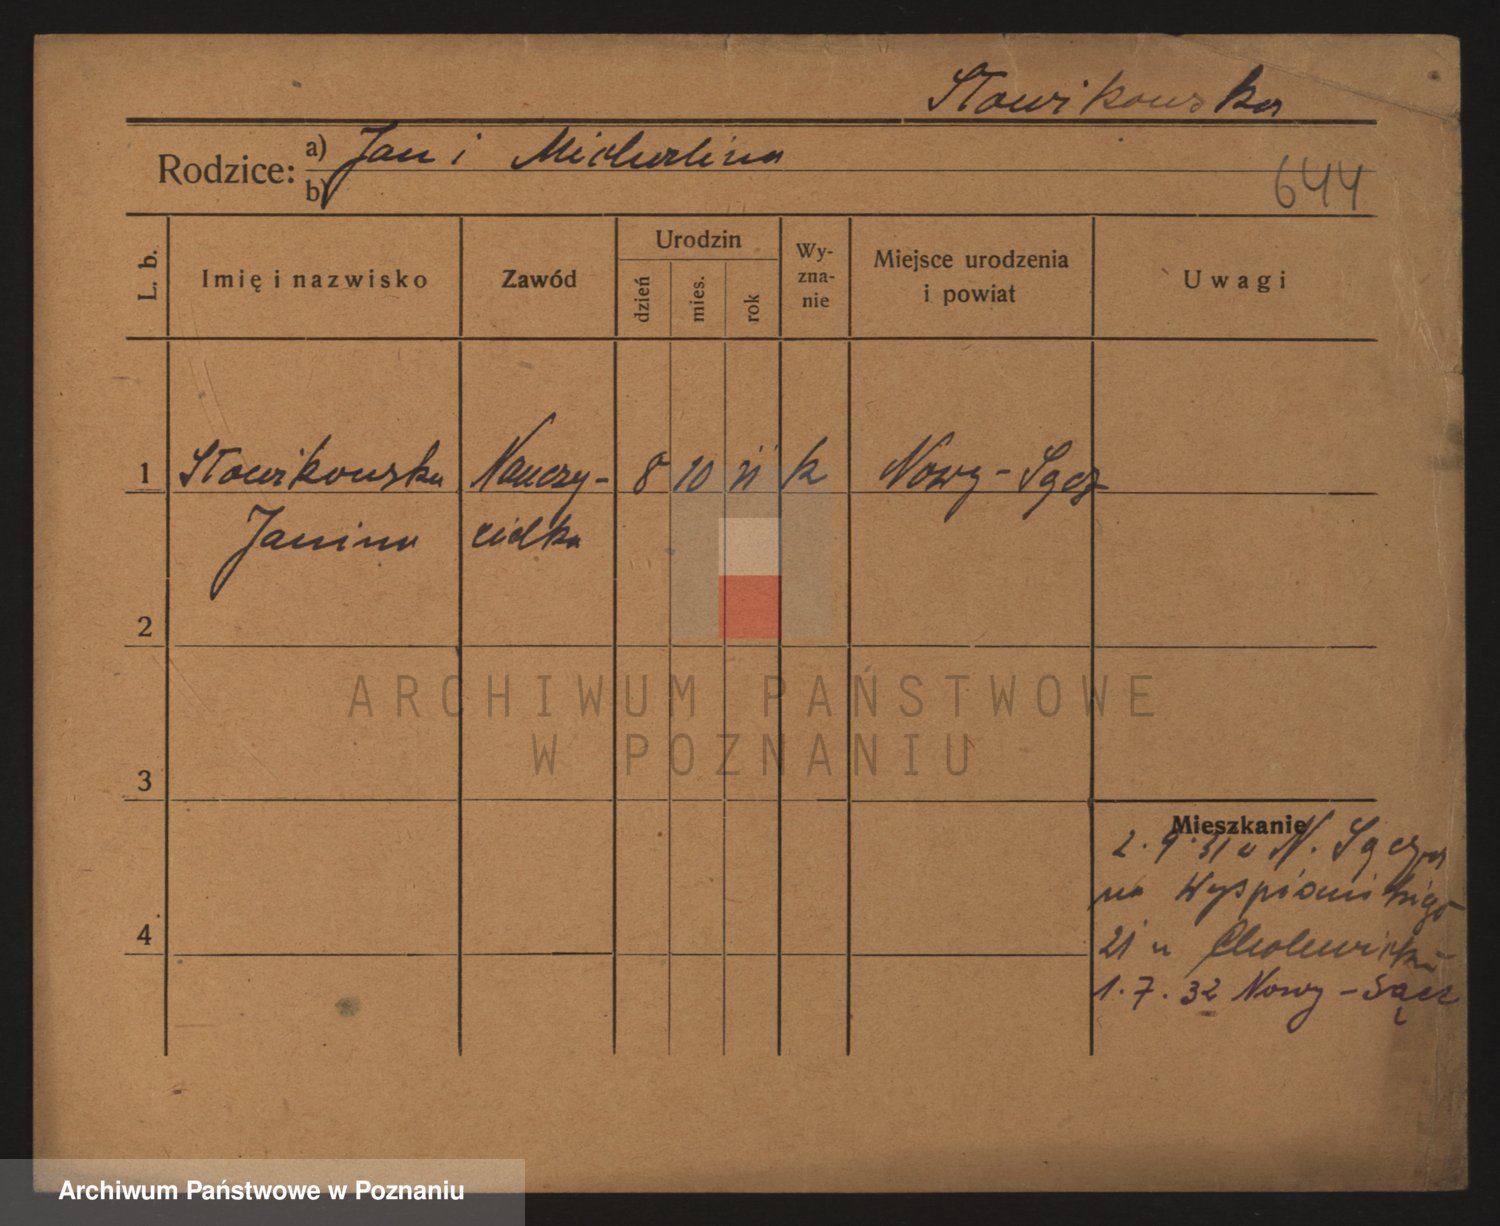 Słowikowska
Rodzice: a) Jan i Michalina
b)
644
L. b.
Imię i nazwisko
Zawód
Urodzin
dzień
mies.
rok
Wy-
zna-
nie
Miejsce urodzenia
i powiat
Uwagi
1 Słowikowska Nauczy- 8 10 11 k Nowy-Sącz
Janina cielka
2
3
4
Mieszkanie
2.9.31 z N. Sącza
na Wyspiańskiego
21 u
1.7.32 Nowy-Sącz
ARCHIWUM PAŃSTWOWE
W POZNANIU
Archiwum Państwowe w Poznaniu